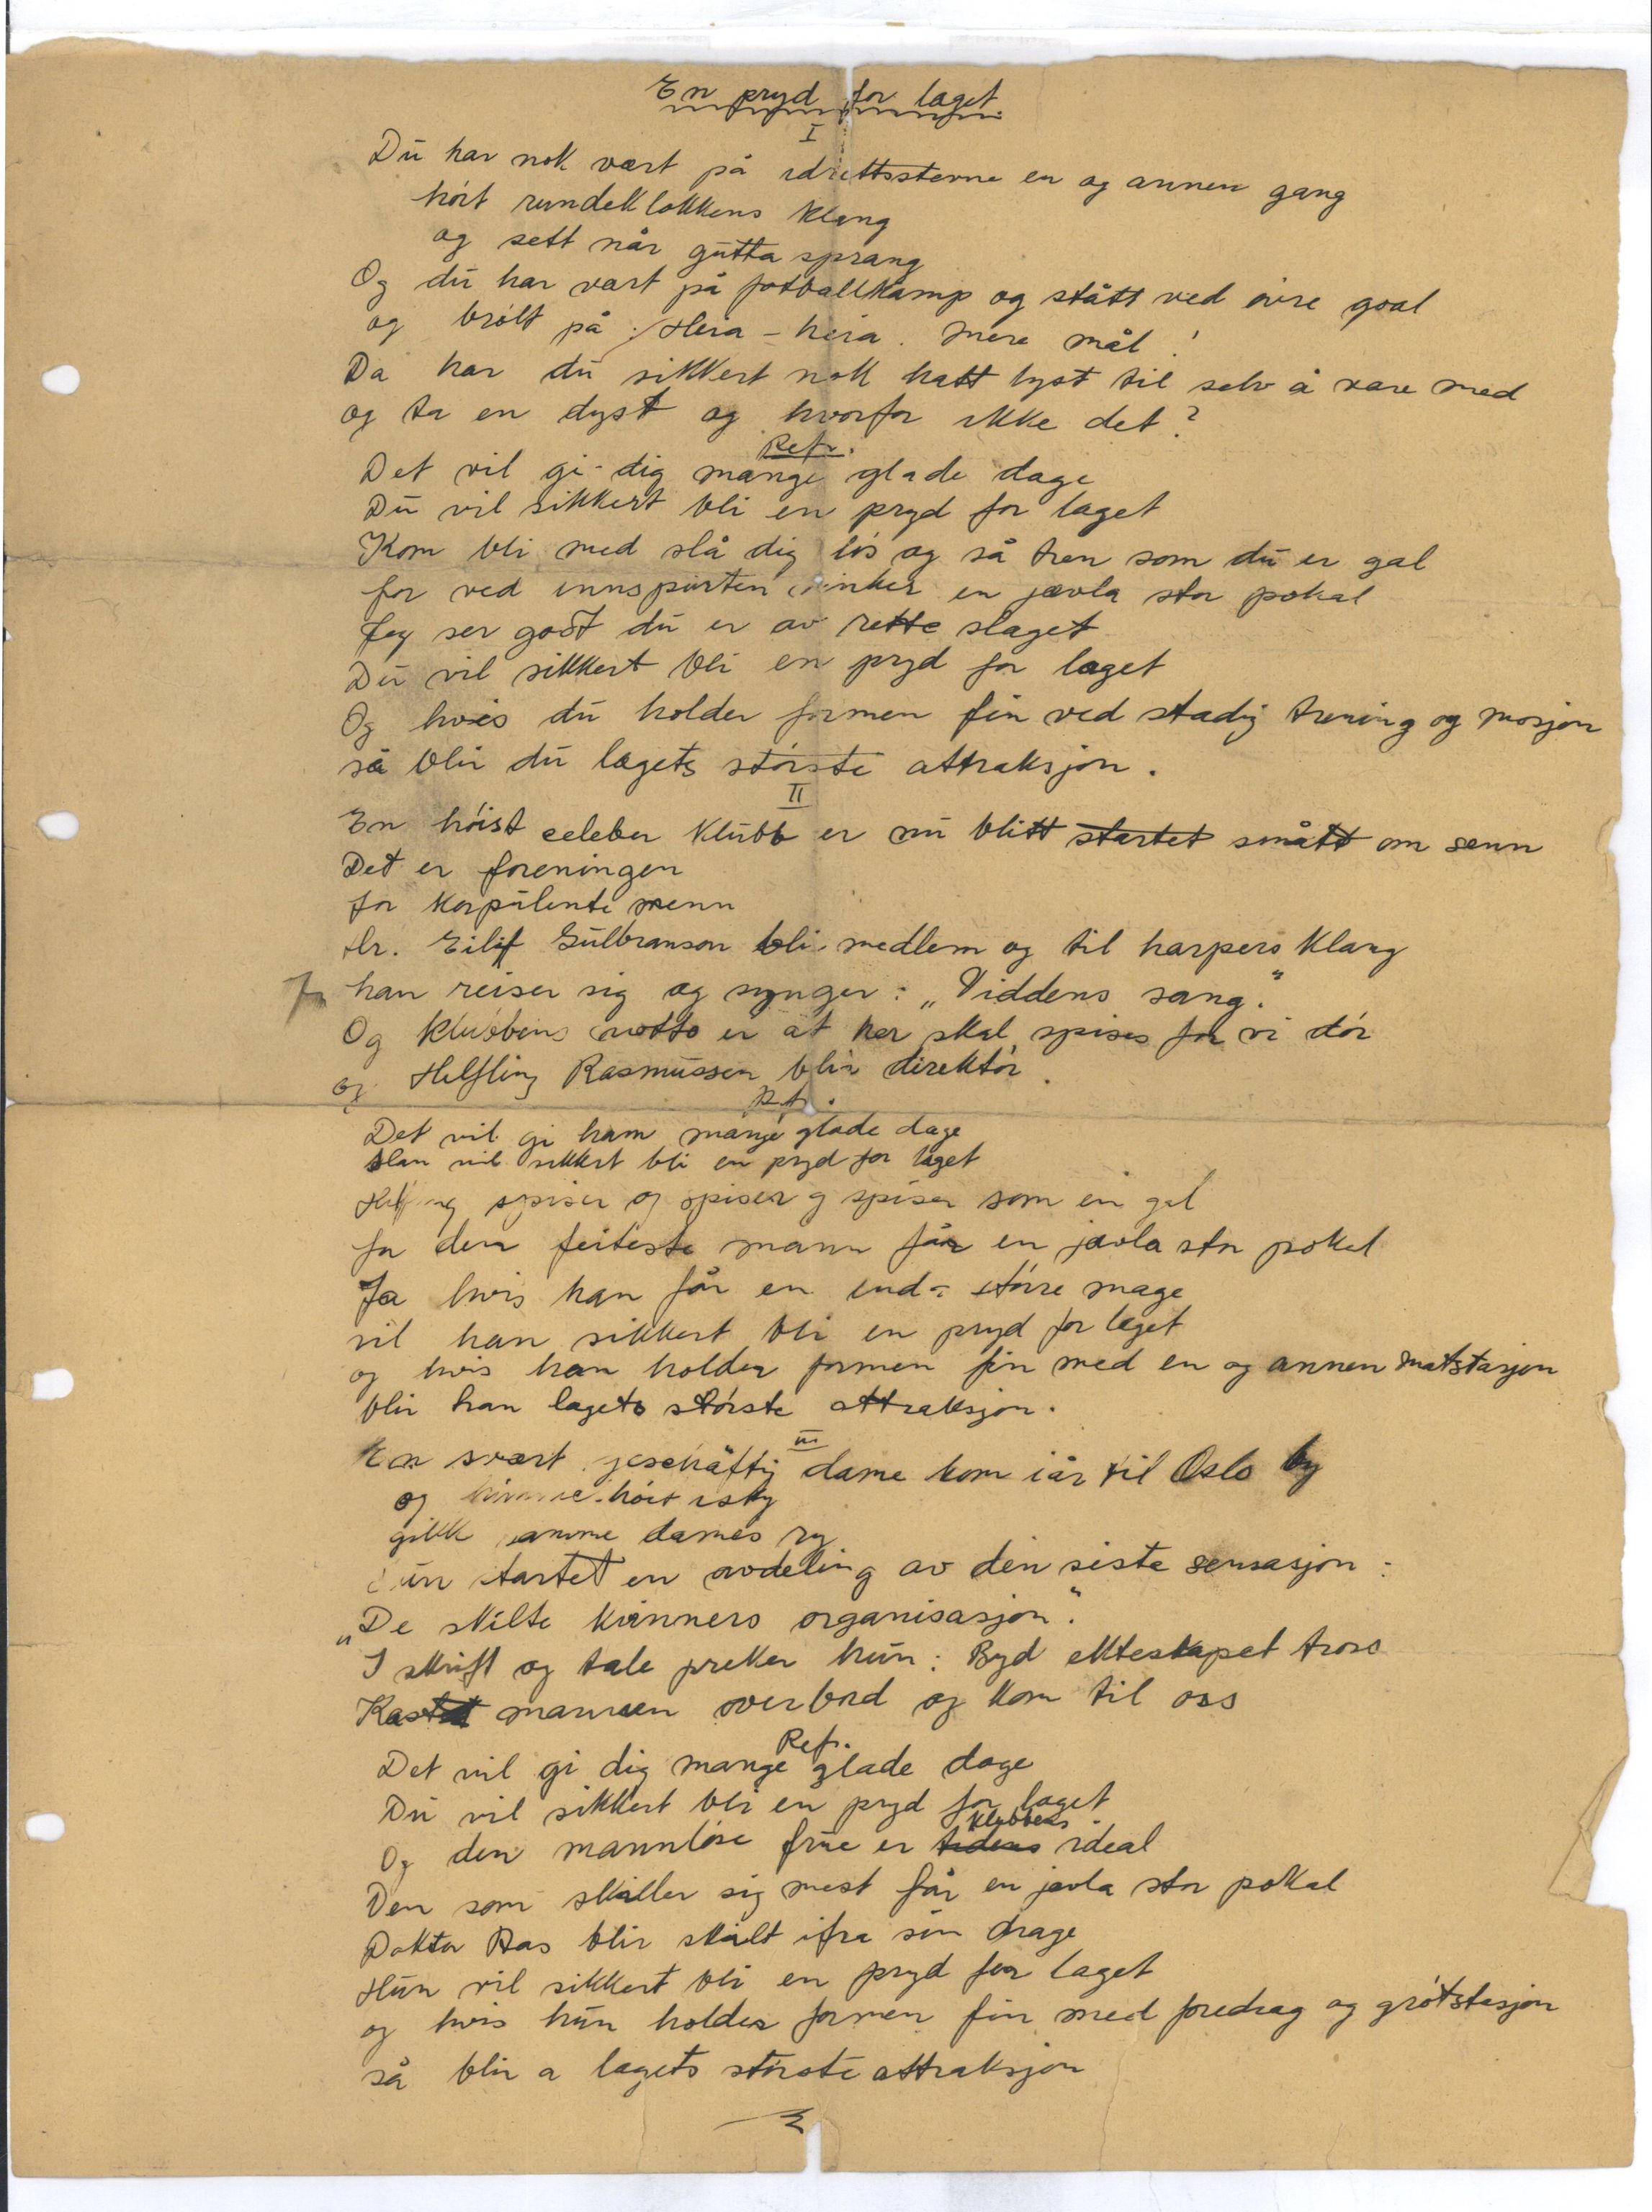 En pryd for laget
I
Du har nok vært på idrettsstevne en og annen gang
hört rundeklokkens klang
og sett når gutta sprang
Og du har vært på fotballkamp og stått ved övre goal
og brölt på: Heia - heia. Mere mål!
Da har du sikkert nok hatt lyst til selv å være med
og ta en dyst og hvorfor ikke det?
Refr.
Det vil gi dig mange glade dage
Du vil sikkert bli en pryd for laget
Kom bli med slå dig lös og så tren som du er gal
for ved innspurten vinker en jævla stor pokal
Jeg ser godt du er av rette slaget
Du vil sikkert bli en pryd for laget
Og hvis du holder formen fin ved stadig trening og mosjon
så blir du lagets störste attraksjon.
II
En höist celeber klubb er nu blitt startet smått om senn
Det er foreningen
for korpulente menn
Hr. Eilif Gulbranson bli medlem og til harpers klang
han reiser sig og synger: „Viddens sang."
Og klubbens motto er at her skal spises for vi dör
og Helfling Rasmussen blir direktör.
Refr.
Det vil gi ham mange glade dage
Han vil sikkert bli en pryd for laget
spiser og spiser og spiser som en gal
for den feiteste mann får en jævla stor pokal
Ja hvis han får en end större mage
vil han sikkert bli en pryd for laget
og hvis han holder formen fin med en og annen matstasjon
blir han lagets störste attraksjon.
III
En svært geschäftig dame kom iår til Oslo by
og himmelhöit isky
gikk samme dames ry
Hun startet en avdeling av den siste sensasjon:
„De skilte kvinners organisasjon".
I skrift og tale preker hun: Byd ekteskapet tross
Kast mannen overbord og kom til oss
Refr.
Det vil gi dig mange glade dage
Du vil sikkert bli en pryd for laget
Og den mannlöse frue er tidens klubbens ideal
Den som skiller sig mest får en jævla stor pokal
Doktor Aas blir skilt ifra sin drage
Hun vil sikkert bli en pryd for laget
og hvis hun holder formen fin med foredrag og grötstasjon
så blir a lagets störste attraksjon